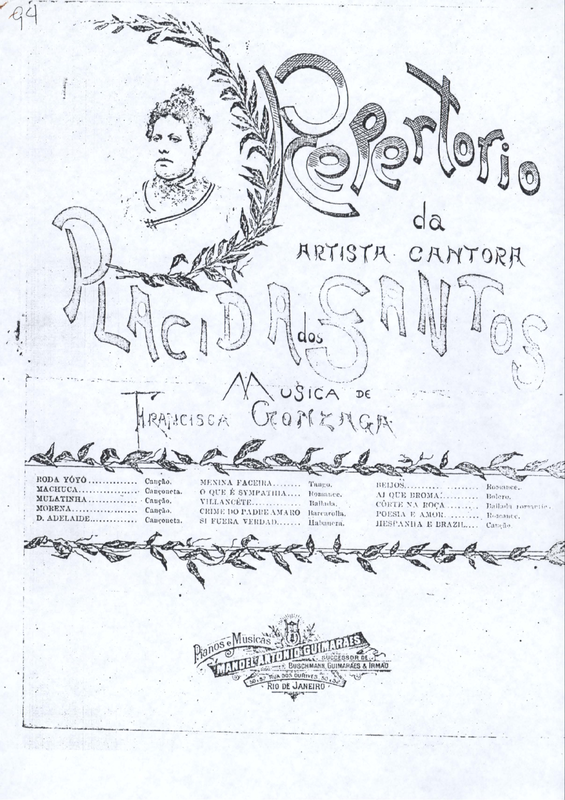 94
Repertorio
da
ARTISTA CANTORA
PLACIDA dos SANTOS
MUSICA DE
FRANCISCA GONZAGA
RODA YÔYÔ............ Canção.
MACHUCA............ Cançoneta.
MULATINHA............ Canção.
MORENA............ Canção.
D. ADELAIDE............ Cançoneta.
MENINA FACEIRA....... Tango.
O QUE É SYMPATHIA.... Romance.
VILLANCÊTE.......... Ballada.
CRIME DO PADRE AMARO Barcarolla.
SI FUERA VERDAD..... Habanera.
BEIJOS............ Romance.
AI QUE BROMA!........ Bolero.
CÔRTE NA ROÇA...... Ballada
POESIA E AMOR...... Romance.
HESPANHA E BRAZIL.... Canção.
Pianos e Musicas
MANOEL ANTONIO GUIMARÃES
SUCCESSOR DE
BUSCHMANN, GUIMARÃES & IRMÃO
RUA DOS OURIVES
RIO DE JANEIRO